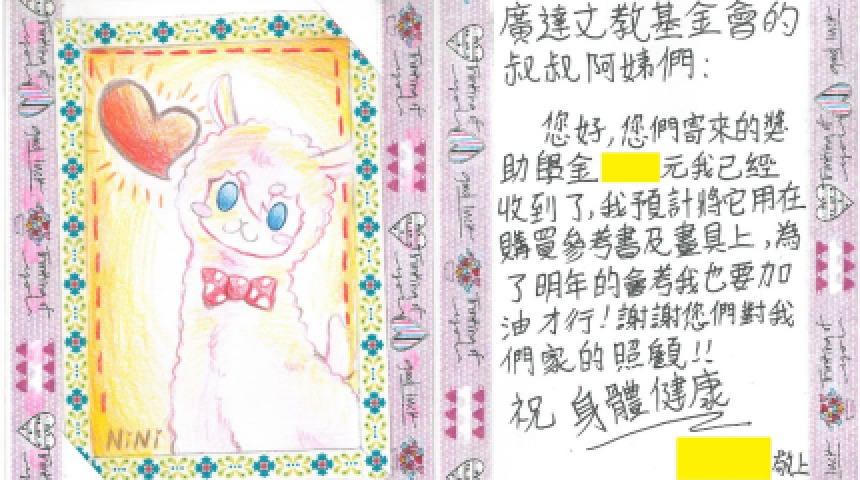 NiNi
廣達文教基金會的
叔叔阿姨們：
您好，您們寄來的獎
助學金 元我已經
收到了，我預計將它用在
購買參考書及畫具上，為
了明年的會考我也要加
油才行！謝謝您們對我
們家的照顧！！
祝 身體健康
敬上